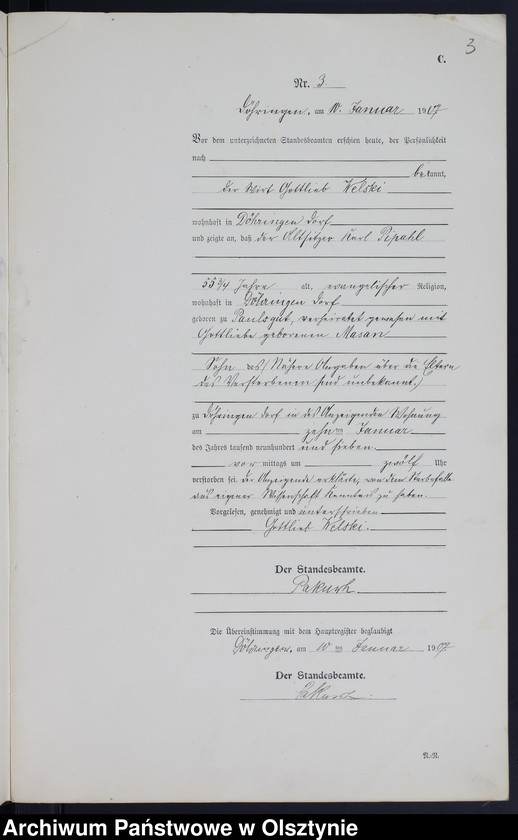 3
C.
Nr. 3.
Döhringen, am 10. Januar 1907
Vor dem unterzeichneten Standesbeamten erschien heute, der Persönlichkeit
nach
bekannt,
der Wirt Gottlieb Welski
wohnhaft in Döhringen Dorf
und zeigte an, daß der Altsitzer Karl
55 3/4 Jahre alt, evangelischer Religion,
wohnhaft in Döhringen Dorf
geboren zu Paulsgut, verheiratet gewesen mit
Gottliebe geborenen Masan
Sohn des (Nähere Angaben über die Eltern
des Verstorbenen sind unbekannt.)
zu Döhringen Dorf in des Anzeigenden Wohnung
am zehnten Januar
des Jahres tausend neunhundert und sieben
vormittags um zwölf Uhr
verstorben sei. Der Anzeigende erklärte, von dem Sterbefalle
aus eigener Wissenschaft Kenntnis zu haben.
Vorgelesen, genehmigt und unterschrieben
Gottlieb Welski.
Der Standesbeamte.
Die Übereinstimmung mit dem Hauptregister beglaubigt
Döhringen, am 10 ten Januar 1907
Der Standesbeamte.
R.-R.
Archiwum Państwowe w Olsztynie